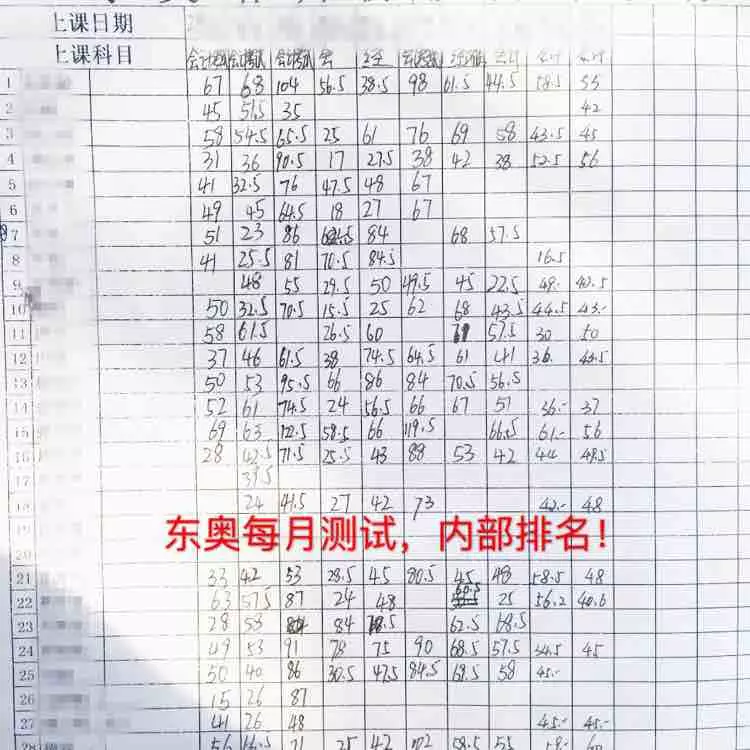 上课日期
上课科目
1 67 68 104 56.5 38.5 98 61.5 44.5 58.5 55
2 45 51.5 35 42
3 58 54.5 65.5 25 61 76 69 58 43.5 45
4 31 36 90.5 17 27.5 38 42 38 52.5 56
5 41 32.5 76 47.5 48 67
6 49 45 64.5 18 27 67
7 51 23 86 84 68 57.5
8 41 25.5 81 70.5 84.5 16.5
9 48 55 29.5 50 49.5 45 22.5
10 50 32.5 70.5 15.5 25 62 68 43.5 44.5 43.-
11 58 61.5 26.5 60 57.5 30 50
12 37 46 61.5 38 74.5 64.5 61 41 36.
13 50 53 95.5 66 86 84 70.5 56.5
14 52 61 74.5 24 56.5 66 67 51 36.- 37
15 69 63 58.5 66 119.5 66.5 61.- 56
16 28 42.5 71.5 25.5 43 88 53 42 44 48.5
24 41.5 27 42 73 42.- 48
东奥每月测试，内部排名！
21 33 42 53 28.5 45 80.5 45 48 58.5 48
22 63 57.5 87 24 48 25 56.2 40.6
23 28 58 84 62.5
24 49 53 91 78 75 90 68.5 57.5 34.5 45
25 50 40 86 30.5 47.5 84.5 68.5 58 45.-
26 15 26 87
27 41 26 48 45.- 45.-
28 56 21 25 42 102 58.5 55